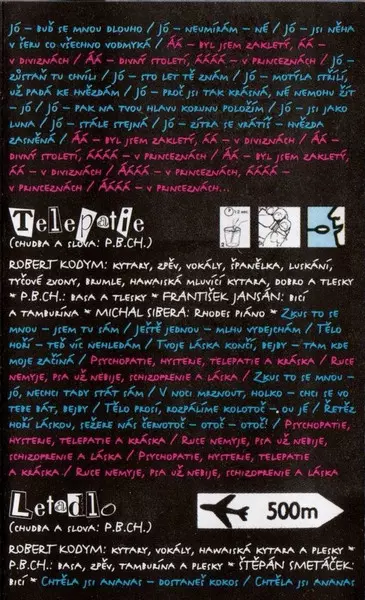 JÓ – BUĎ SE MNOU DLOUHO / JÓ – NEUMÍRÁM – NÉ / JÓ – JSI NĚHA
V ŠERU CO VŠECHNO VODMYKÁ / ÁÁ – BYL JSEM ZAKLETÝ, ÁÁ –
V DIVIZNÁCH / ÁÁ – DIVNÝ STOLETÍ, ÁÁÁÁ – V PRINCEZNÁCH / JÓ –
ZŮSTAŇ TU CHVÍLI / JÓ – STO LET TĚ ZNÁM / JÓ – MOTÝLA STŘÍLÍ,
UŽ PADÁ KE HVĚZDÁM / JÓ – PROČ JSI TAK KRÁSNÁ, NĚ NEMOHU ŽÍT
– JÓ / JÓ – PAK NA TVOU HLAVU KORUNU POLOŽÍM / JÓ – JSI JAKO
LUNA / JÓ – STÁLE STEJNÁ / JÓ – ZÍTRA SE VRÁTÍŠ – HVĚZDA
ZASNĚNÁ / ÁÁ – BYL JSEM ZAKLETÝ, ÁÁ – V DIVIZNÁCH / ÁÁ –
DIVNÝ STOLETÍ, ÁÁÁÁ – V PRINCEZNÁCH / ÁÁ – BYL JSEM ZAKLETÝ,
ÁÁ – V DIVIZNÁCH / ÁÁÁÁ – V PRINCEZNÁCH / ÁÁÁÁ –
V PRINCEZNÁCH / ÁÁÁÁ – V PRINCEZNÁCH...
Telepatie
(CHUDBA A SLOVA: P.B.CH.)
ROBERT KODYM: KYTARY, ZPĚV, VOKÁLY, ŠPANĚLKA, LUSKÁNÍ,
TYČOVÉ ZVONY, BRUMLE, HAWAJSKÁ MLUVÍCÍ KYTARA, DOBRO A TLESKY
* P.B.CH.: BASA A TLESKY * FRANTIŠEK JANSÁN: BICÍ
A TAMBURÍNA * MICHAL SIBERA: RHODES PIÁNO * ZKUS TO SE
MNOU – JSEM TU SÁM / JEŠTĚ JEDNOU – MLHU VYDEJCHÁM / TĚLO
HOŘÍ – TEĎ VÍC NEHLEDÁM / TVOJE LÁSKA KONČÍ, BEJBY – TAM KDE
MOJE ZAČÍNÁ / PSYCHOPATIE, HYSTERIE, TELEPATIE A KRÁSKA / RUCE
NEMYJE, PSA UŽ NEBIJE, SCHIZOFRENIE A LÁSKA / ZKUS TO SE MNOU –
JÓ, NECHCI TADY STÁT SÁM / V NOCI MRZNOUT, HOLKO – CHCI SE VO
TEBE BÁT, BEJBY / TĚLO PROSÍ, ROZPÁLÍME KOLOTOČ – OU JÉ / ŘETĚZ
HOŘÍ LÁSKOU, SEŽERE NÁS ČERVOTOČ – OTOČ – OTOČ! / PSYCHOPATIE,
HYSTERIE, TELEPATIE A KRÁSKA / RUCE NEMYJE, PSA UŽ NEBIJE,
SCHIZOFRENIE A LÁSKA / PSYCHOPATIE, HYSTERIE, TELEPATIE
A KRÁSKA / RUCE NEMYJE, PSA UŽ NEBIJE, SCHIZOFRENIE A LÁSKA
Letadlo
500m
(CHUDBA A SLOVA: P.B.CH.)
ROBERT KODYM: KYTARY, VOKÁLY, HAWAJSKÁ KYTARA A PLESKY *
P.B.CH.: BASA, ZPĚV, TAMBURÍNA A PLESKY * ŠTĚPÁN SMETÁČEK:
BICÍ * CHTĚLA JSI ANANAS – DOSTANEŠ KOKOS / CHTĚLA JSI ANANAS